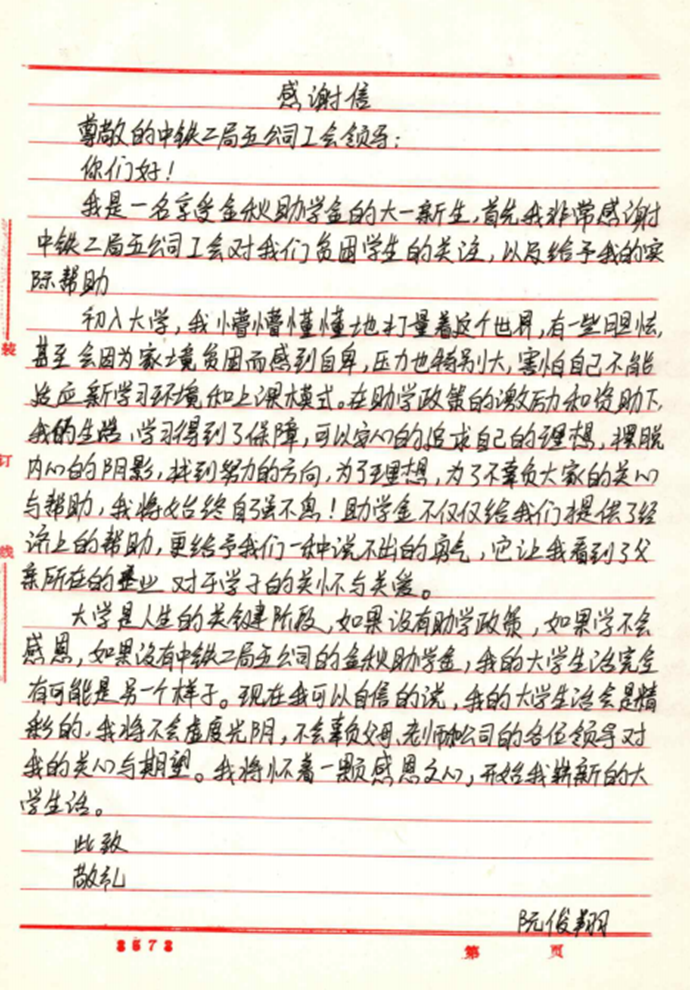 感谢信
尊敬的中铁二局五公司工会领导：
你们好！
我是一名享受金秋助学金的大一新生，首先我非常感谢
中铁二局五公司工会对我们贫困学生的关注，以及给予我的实
际帮助
初入大学，我懵懵懂懂地打量着这个世界，有一些胆怯，
甚至会因为家境贫困而感到自卑，压力也特别大，害怕自己不能
适应新学习环境和上课模式。在助学政策的激励和资助下，
我的生活、学习得到了保障，可以安心的追求自己的理想，摆脱
内心的阴影，找到努力的方向，为了理想，为了不辜负大家的关心
与帮助，我将始终自强不息！助学金不仅仅给我们提供了经
济上的帮助，更给予我们一种说不出的勇气，它让我看到了父
亲所在的企业对于学子的关怀与关爱。
大学是人生的关键阶段，如果没有助学政策，如果学不会
感恩，如果没有中铁二局五公司的金秋助学金，我的大学生活完全
有可能是另一个样子。现在我可以自信的说，我的大学生活会是精
彩的，我将不会虚度光阴，不会辜负父母、老师和公司的各位领导对
我的关心与期望。我将怀着一颗感恩之心，开始我崭新的大
学生活。
此致
敬礼
阮俊翔
装
订
线
3573 第 页